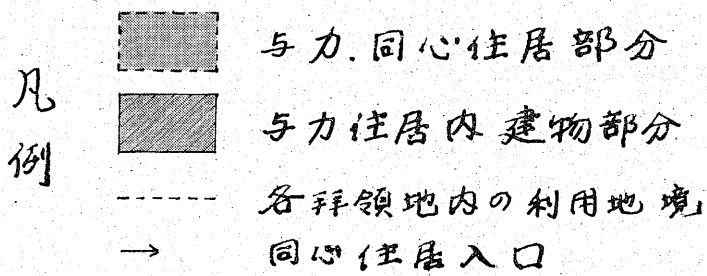 凡例
与力.同心住居部分
与力住居内建物部分
各拝領地内の利用地境
同心住居入口